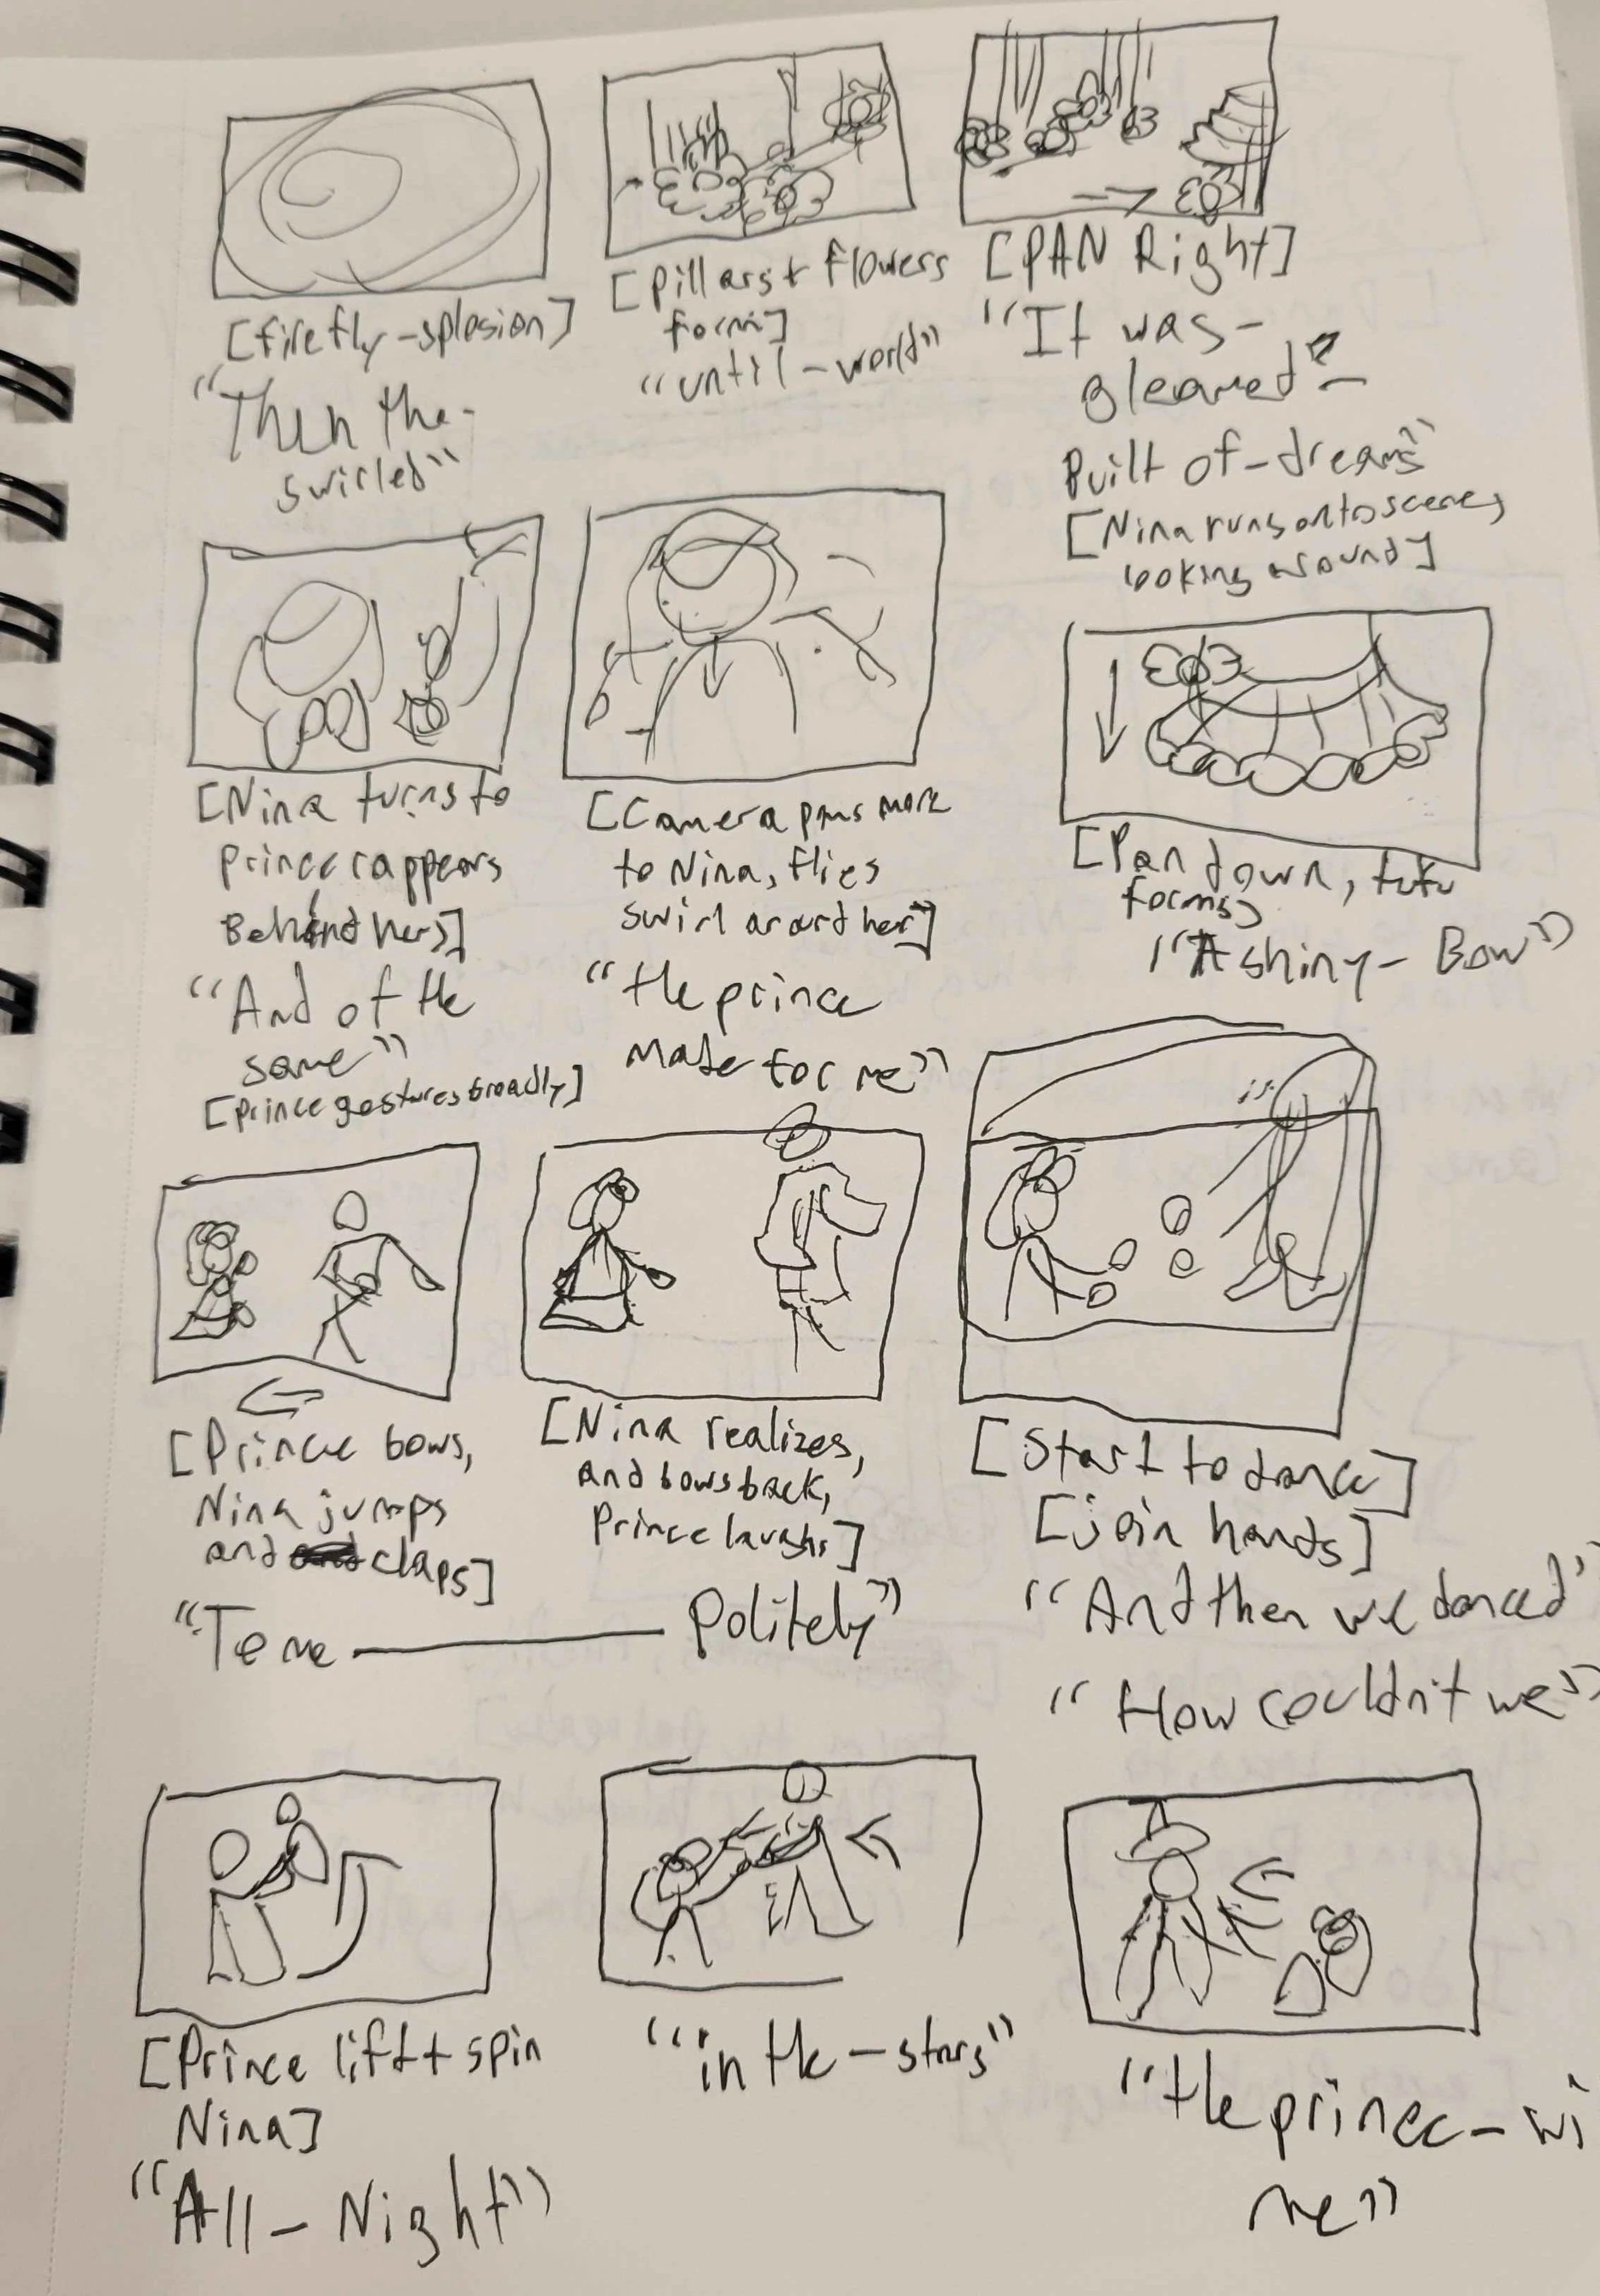 [firefly-splosion]
"Then the-
swirled"
[Pillars + flowers
form]
"until - world"
[PAN Right]
"It was-
gleamed"-
Built of-dreams"
[Nina runs onto scene,
looking around]
[Nina turns to
Prince appears
Behind her]
"And of the
same"
[Prince gestures broadly]
[Camera pans more
to Nina, flies
swirl around her]
"the prince
Made for me"
[Pan down, tutu
forms]
"A shiny- Bow"
[Prince bows,
Nina jumps
and claps]
"To me
[Nina realizes,
and bows back,
Prince laughs]
Politely"
[Start to dance]
[join hands]
"And then we danced"
"How couldn't we"
[Prince lift + spin
Nina]
"All - Night"
"in the - stars"
"the prince - wi
me"